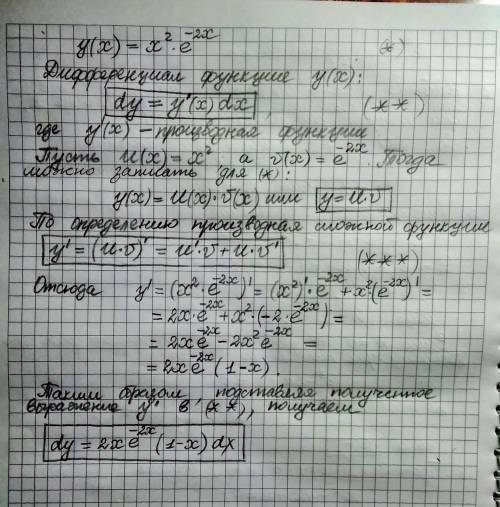 y(x) = x²·e^{-2x} (*)
Дифференциал функции y(x):
dy = y'(x) dx, (**)
где y'(x) – производная функции
Пусть u(x) = x², а v(x) = e^{-2x}. Тогда
можно записать для (*):
y(x) = u(x)·v(x) или y = u·v
По определению производная сложной функции
y' = (u·v)' = u'·v + u·v' (***)
Отсюда y' = (x²·e^{-2x})' = (x²)'·e^{-2x} + x²·(e^{-2x})' =
= 2x·e^{-2x} + x²·(-2·e^{-2x}) =
= 2xe^{-2x} - 2x²e^{-2x} =
= 2xe^{-2x}(1-x).
Таким образом, подставляя полученное
выражение y' в (**), получаем
dy = 2xe^{-2x}(1-x)dx